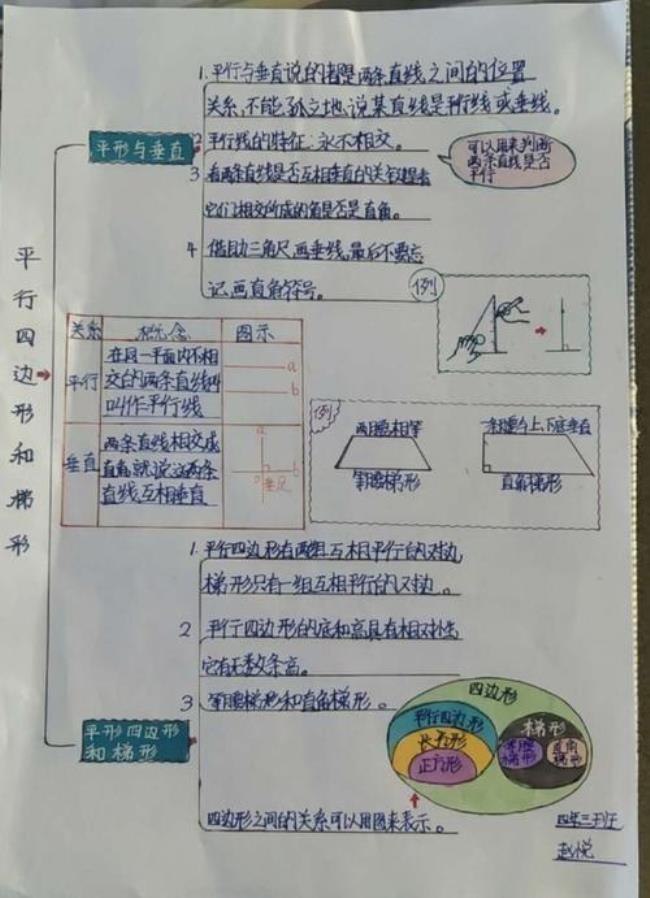 平行四边形和梯形
平形与垂直
1.平行与垂直说的都是两条直线之间的位置
关系,不能孤立地说某直线是平行线或垂线。
2 平行线的特征:永不相交。
可以用来判断
两条直线是否
平行
3 看两条直线是否互相垂直的关键是看
它们相交所成的角是否是直角。
4 借助三角尺画垂线,最后不要忘
记画直角符号。
例
关系 概念 图示
平行
在同一平面内不相
交的两条直线叫
叫作平行线
a
b
垂直
两条直线相交成
直角,就说这两条
直线互相垂直
a
b
o
垂足
例
两腰相等
等腰梯形
一条腰与上、下底垂直
直角梯形
平形四边形
和梯形
1.平行四边形有两组互相平行的对边,
梯形只有一组互相平行的对边。
2 平行四边形的底和高具有相对性
它有无数条高。
3 等腰梯形和直角梯形。
四边形
平行四边形
长方形
正方形
梯形
等腰
梯形
直角
梯形
四边形之间的关系可以用图来表示。
四年三班
赵悦